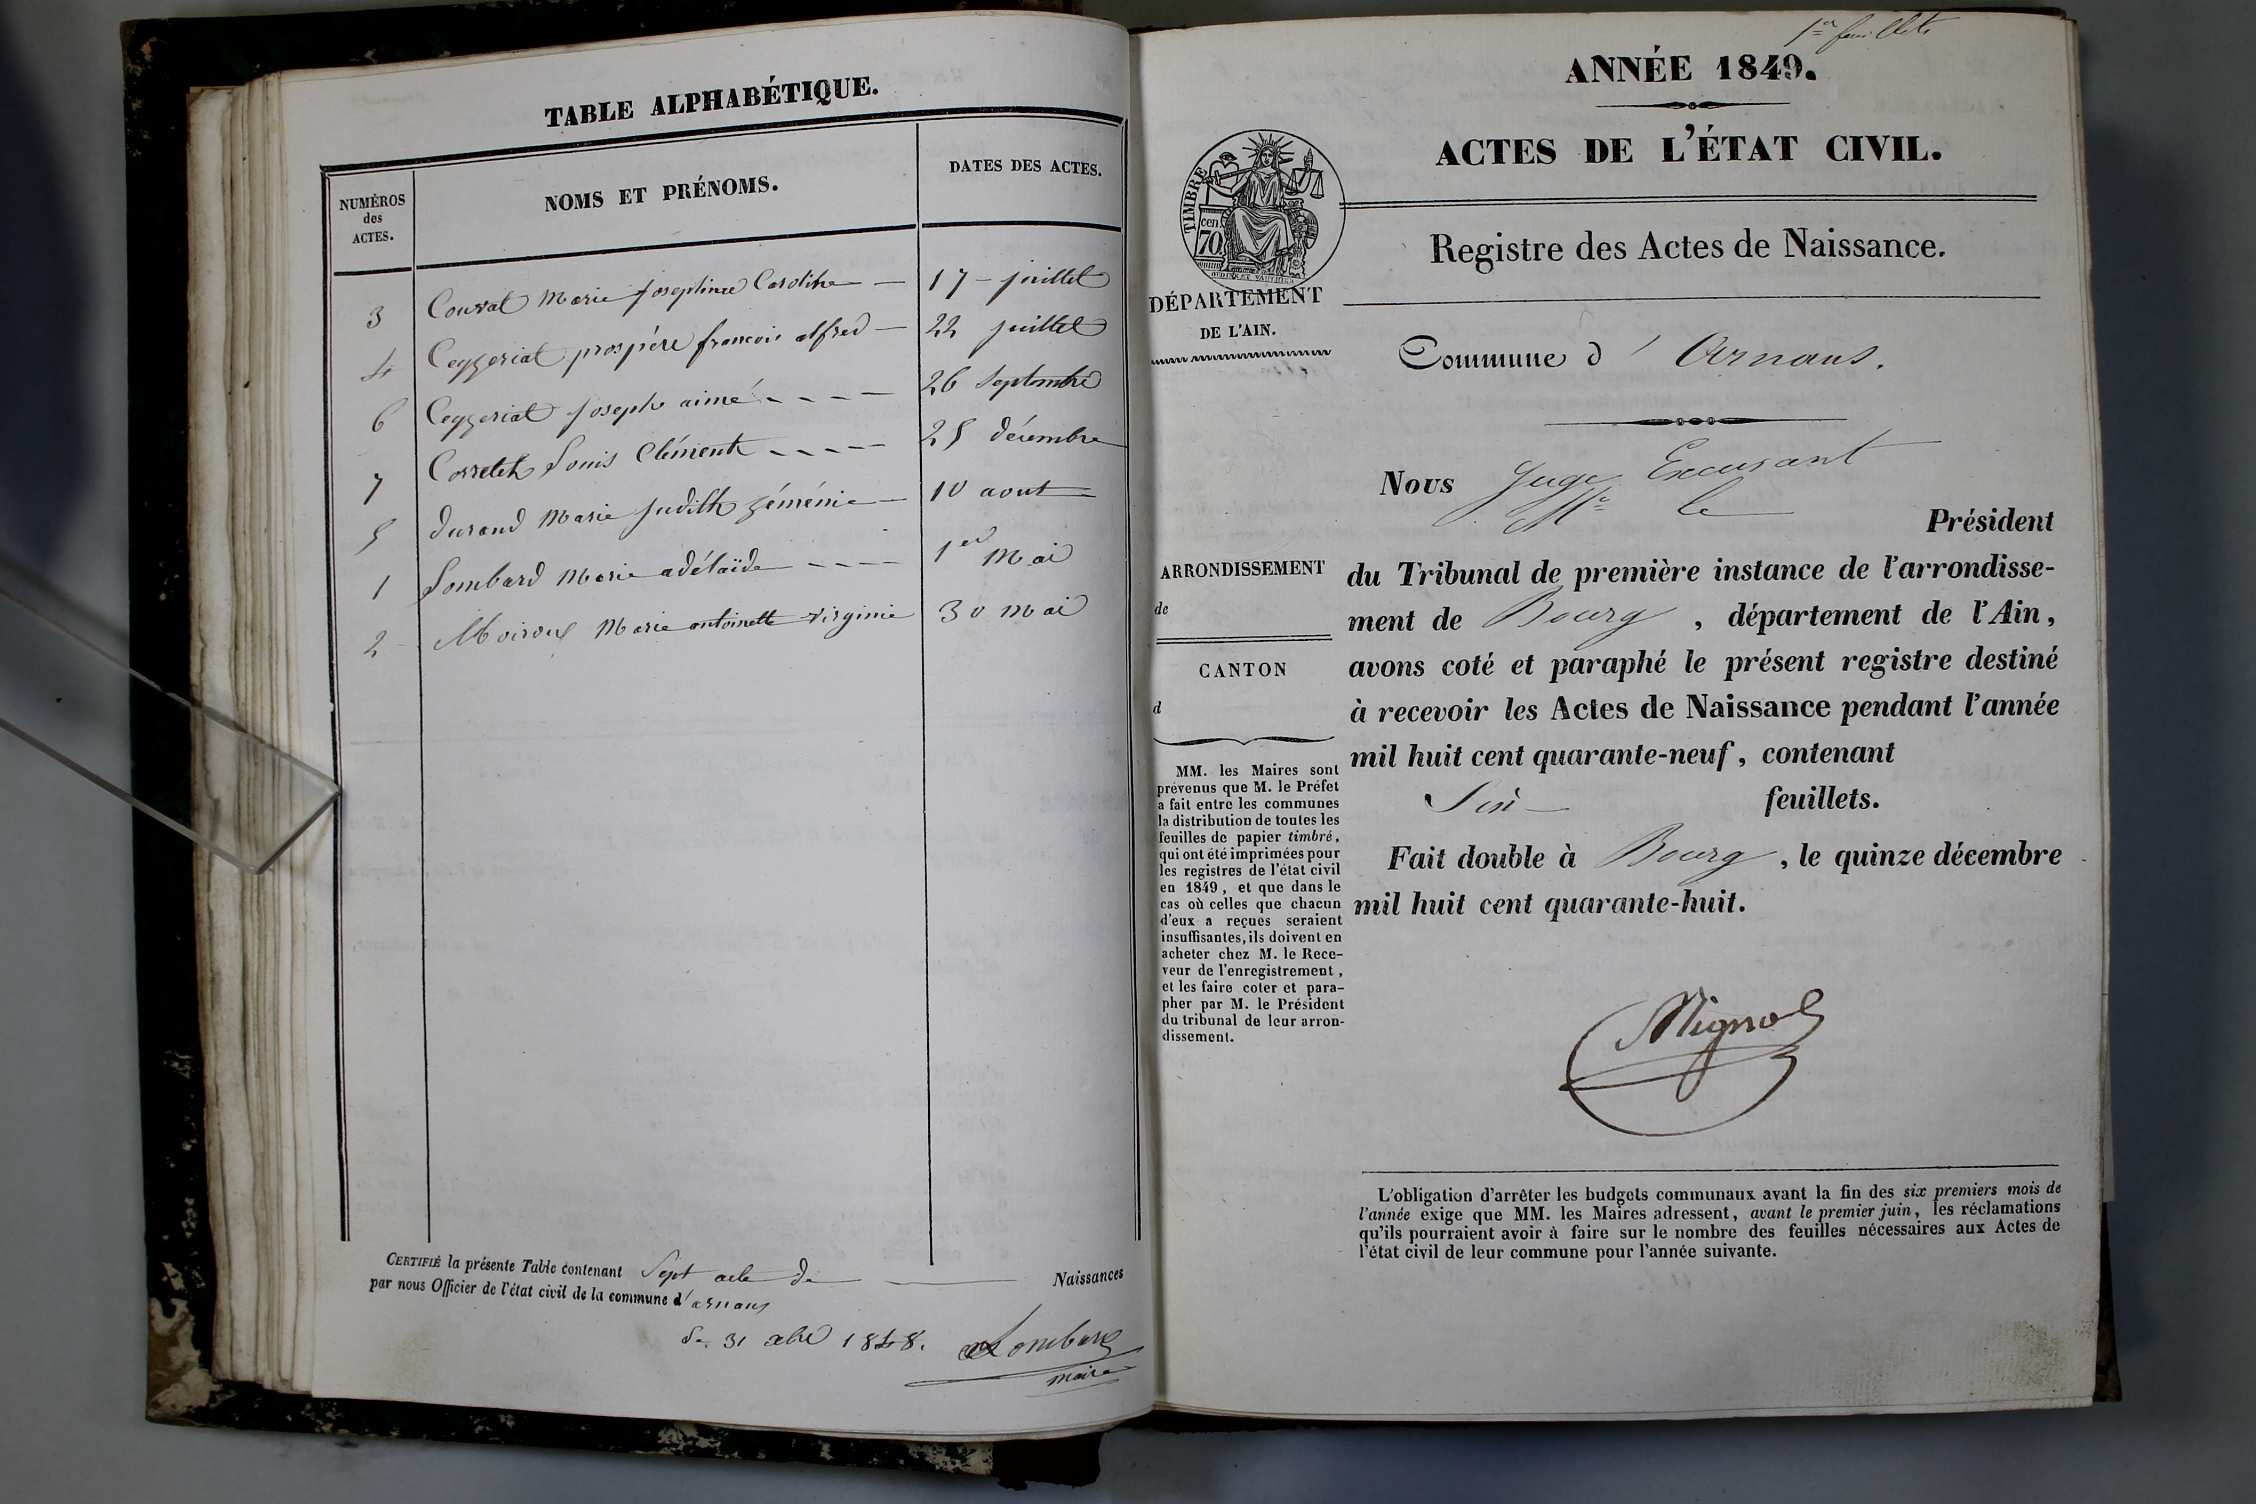 TABLE ALPHABÉTIQUE.
NUMÉROS
des
ACTES.
NOMS ET PRÉNOMS.
DATES DES ACTES.
3 Convat Marie josephine Caroline — 17 - juillet
4 Ceyzeriat prospére francois alfred — 22 juillet
6 Ceyzeriat joseph aimé - - - - 26 Septembre
7 Corretet Louis Clément - - - - 25 décembre
5 durand Marie judith — 10 aout
1 Lombard Marie adélaïde - - - - 1er Mai
2 Moiroux Marie antoinette virginie 30 Mai
CERTIFIÉ la présente Table contenant Sept acte de — Naissances
par nous Officier de l'état civil de la commune d'arnans
le 31 xbre 1848.
Lombard
maire
1er feuillet
ANNÉE 1849.
ACTES DE L'ÉTAT CIVIL.
TIMBRE
70 cen
Registre des Actes de Naissance.
DÉPARTEMENT
DE L'AIN.
Commune d' Arnans.
Nous Juge
Mr le
Président
du Tribunal de première instance de l'arrondisse-
ment de Bourg, département de l'Ain,
avons coté et paraphé le présent registre destiné
à recevoir les Actes de Naissance pendant l'année
mil huit cent quarante-neuf, contenant
Six feuillets.
Fait double à Bourg, le quinze décembre
mil huit cent quarante-huit.
ARRONDISSEMENT
de
CANTON
d
MM. les Maires sont
prévenus que M. le Préfet
a fait entre les communes
la distribution de toutes les
feuilles de papier timbré,
qui ont été imprimées pour
les registres de l'état civil
en 1849, et que dans le
cas où celles que chacun
d'eux a reçues seraient
insuffisantes, ils doivent en
acheter chez M. le Rece-
veur de l'enregistrement,
et les faire coter et para-
pher par M. le Président
du tribunal de leur arron-
dissement.
L'obligation d'arrêter les budgets communaux avant la fin des six premiers mois de
l'année exige que MM. les Maires adressent, avant le premier juin, les réclamations
qu'ils pourraient avoir à faire sur le nombre des feuilles nécessaires aux Actes de
l'état civil de leur commune pour l'année suivante.